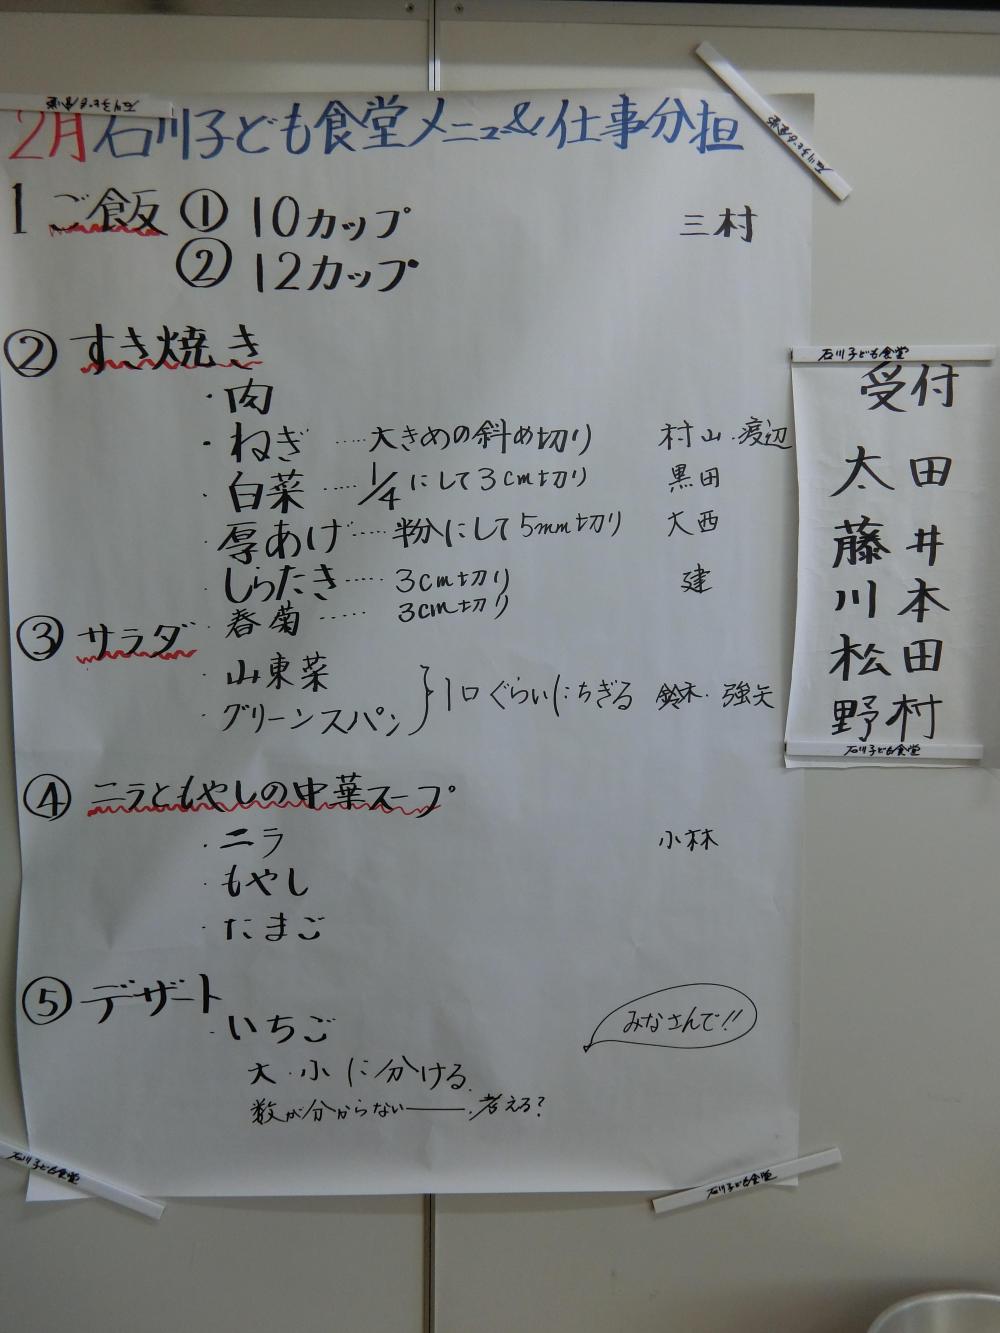 石川子ども食堂
2月 石川子ども食堂メニュー&仕事分担
石川子ども食堂
1 ご飯 ① 10カップ 三村
② 12カップ
② すき焼き
・肉
・ねぎ ‥‥ 大きめの斜め切り 村山・渡辺
・白菜 ‥‥ 1/4にして3cm切り 黒田
・厚あげ ‥‥ 半分にして5mm切り 大西
・しらたき ‥‥ 3cm切り 建
・春菊 ‥‥ 3cm切り
③ サラダ
・山東菜
・グリーンスパン } 1口ぐらいにちぎる 鈴木・強矢
④ ニラともやしの中華スープ
・ニラ 小林
・もやし
・たまご
⑤ デザート
・いちご
みなさんで!!
大・小に分ける
数が分からない――考える?
石川子ども食堂
石川子ども食堂
石川子ども食堂
受付
太田
藤井
川本
松田
野村
石川子ども食堂